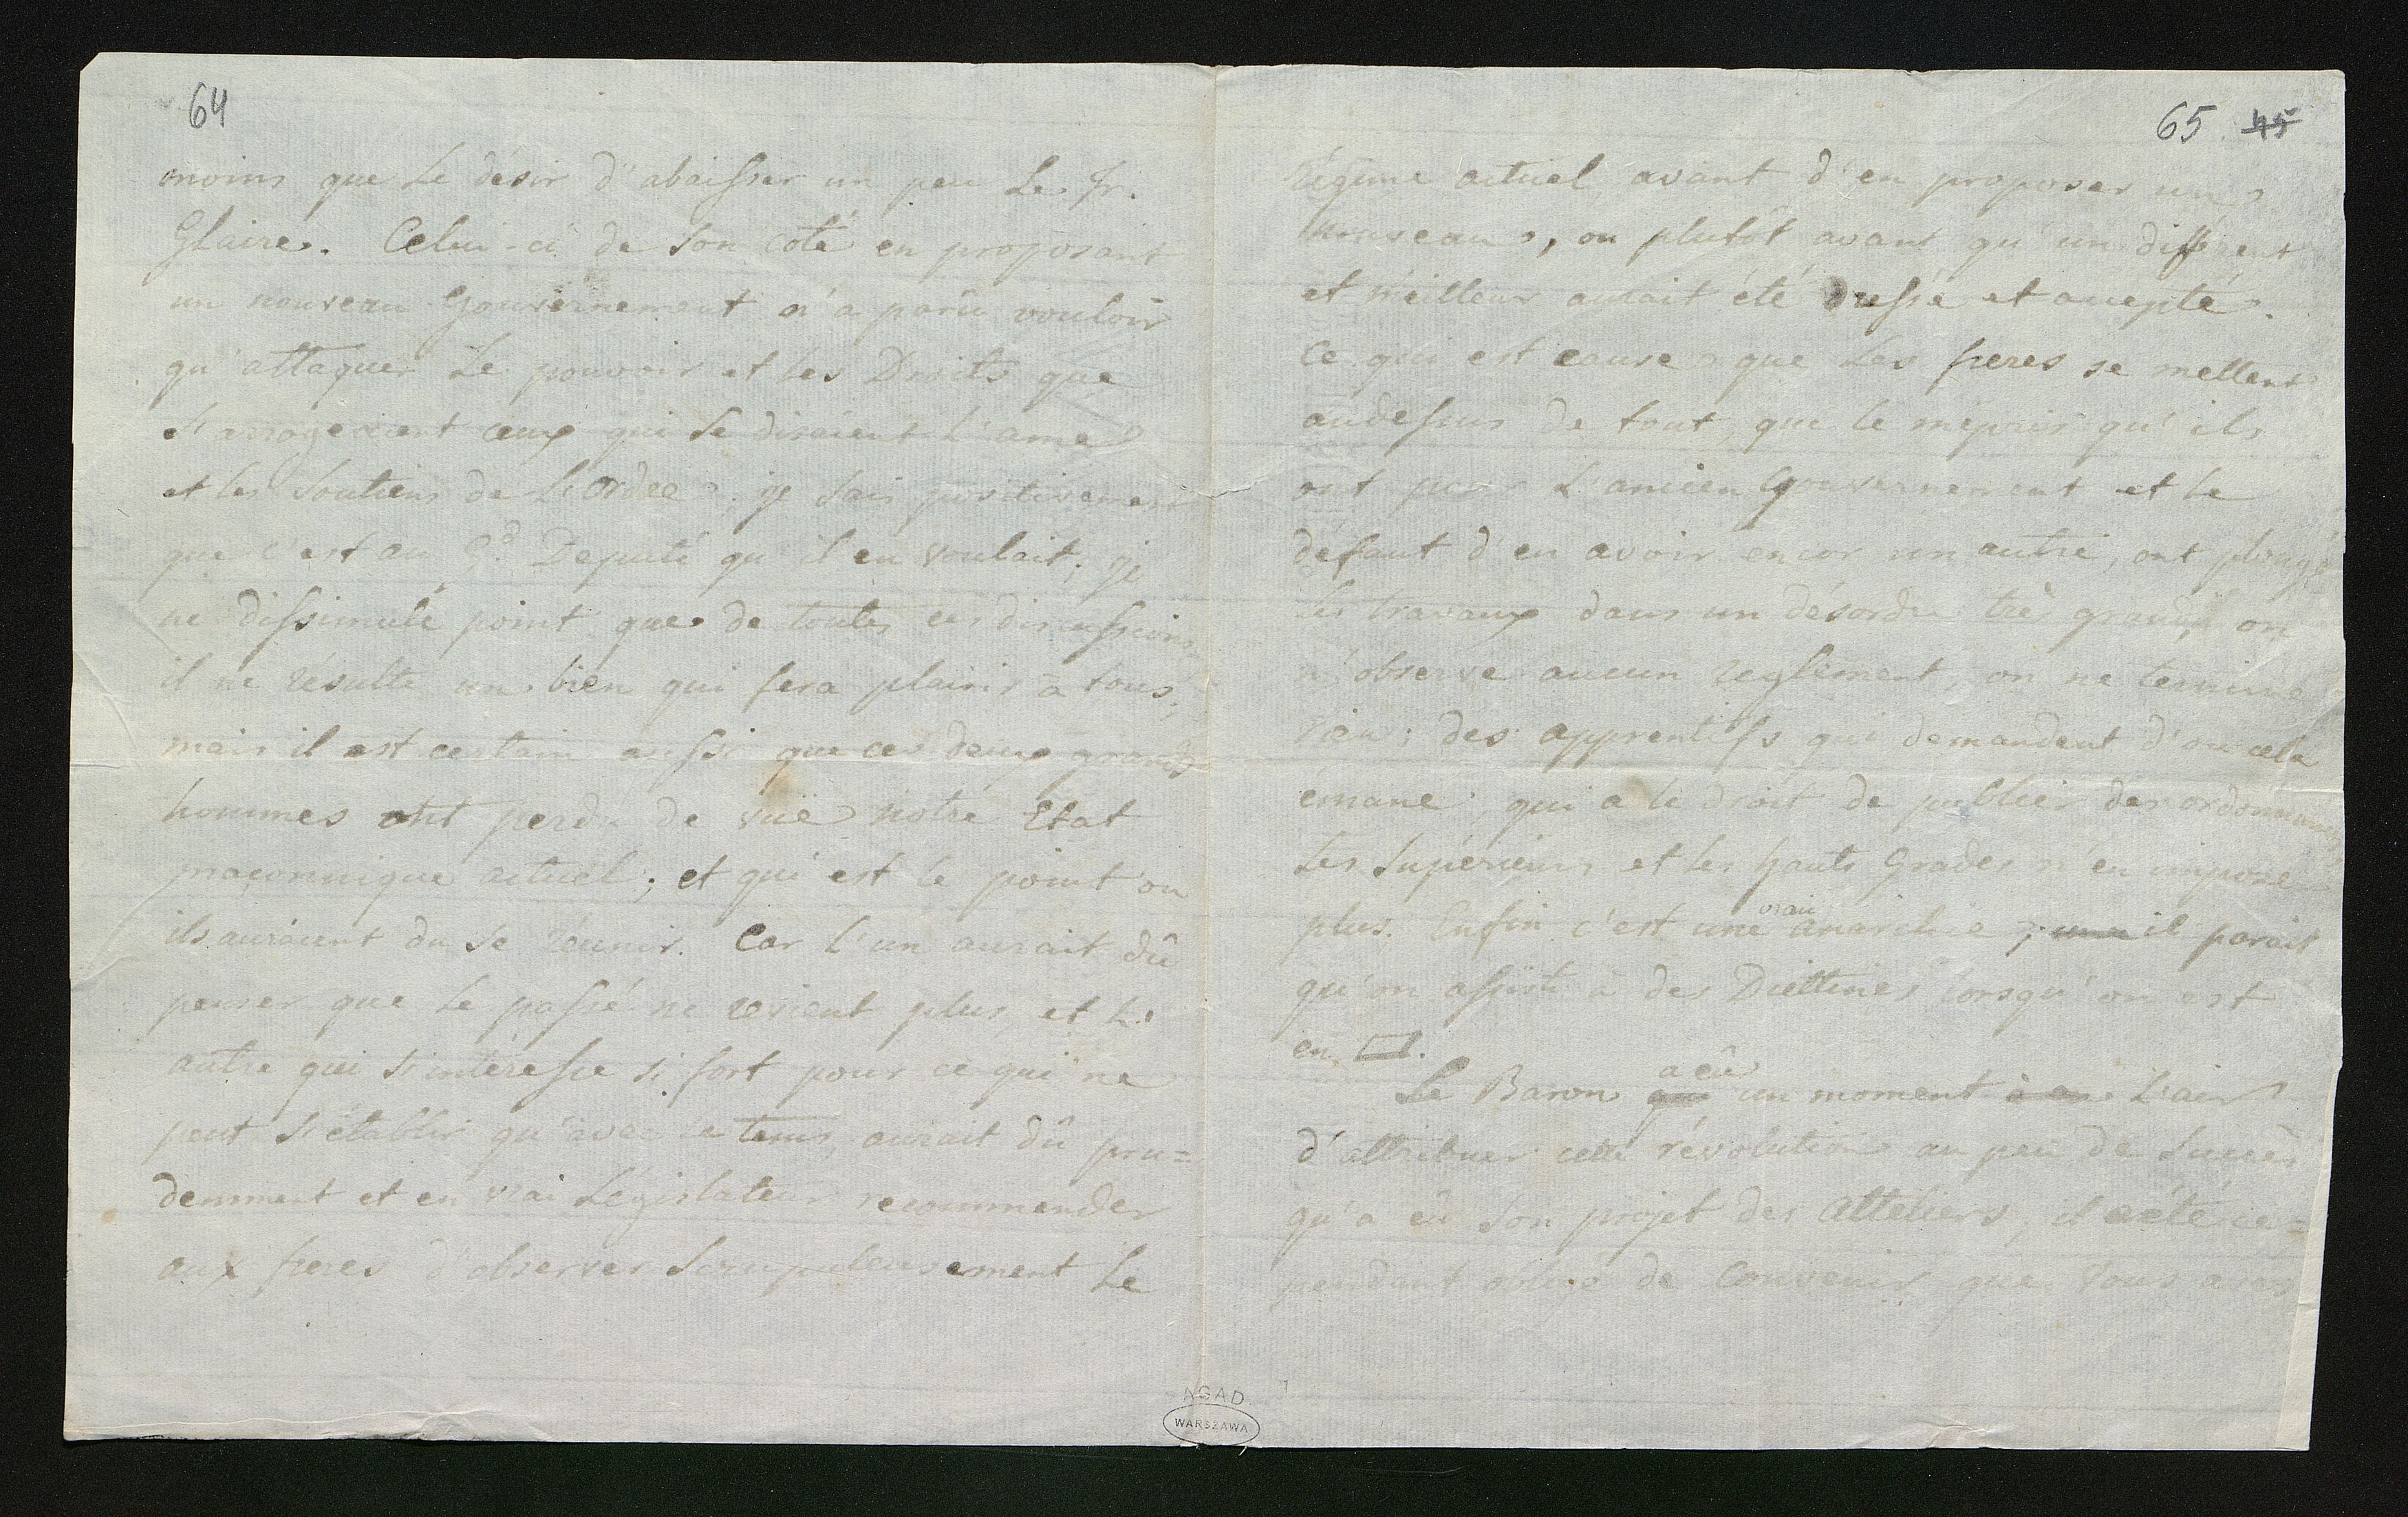 64
moins que le désir d'abaisser un peu le fr.
Glaire. Celui-ci de son coté en proposant
un nouveau Gouvernement n'a parû vouloir
qu'attaquer le pouvoir et les Droits que
s'arrogeaient ceux qui se disaient l'ame
et les soutiens de l'Ordre; je sais positivement
que c'est au Gd Deputé qu'il en voulait; je
ne dissimule point que de toutes ces discussions
il ne résulte un bien qui fera plaisir à tous;
mais il est certain aussi que ces deux grands
hommes ont perdu de vüe notre Etat
maçonnique actuel; et qui est le point ou
ils auraient du se réunir. Car l'un aurait dû
penser que le passé ne revient plus, et l'
autre qui s'intéresse si fort pour ce qui ne
peut s'établir qu'avec le tems, aurait dû pru=
demment et en vrai Législateur recommender
aux freres d'observer scrupuleusement le
65 45
régime actuel, avant d'en proposer un
nouveau, ou plutôt avant qu'un different
et meilleur aurait été dressé et accepté.
Ce qui est cause que les freres se mettent
audessus de tout, que le mepris qu'ils
ont pour l'ancien Gouvernement et le
défaut d'en avoir encor un autre, ont plongé
les travaux dans un désordre très grand, on
n'observe aucun reglement, on ne termine
rien; des apprentifs qui demandent d'ou cela
émane, qui a le droit de publier des ordonnances
Les Supérieurs et les hauts Grades n'en impose
plus. Enfin c'est une vrai anarchie; il parait
qu'on assiste à des Diettines lorsqu'on est
en ▭.
Le Baron qui a eû un moment l'air
d'attribuer cette révolution au peu de succès
qu'a eû son projet des Atteliers, il a été ce=
pendant obligé de convenir que vous avez
AGAD
WARSZAWA